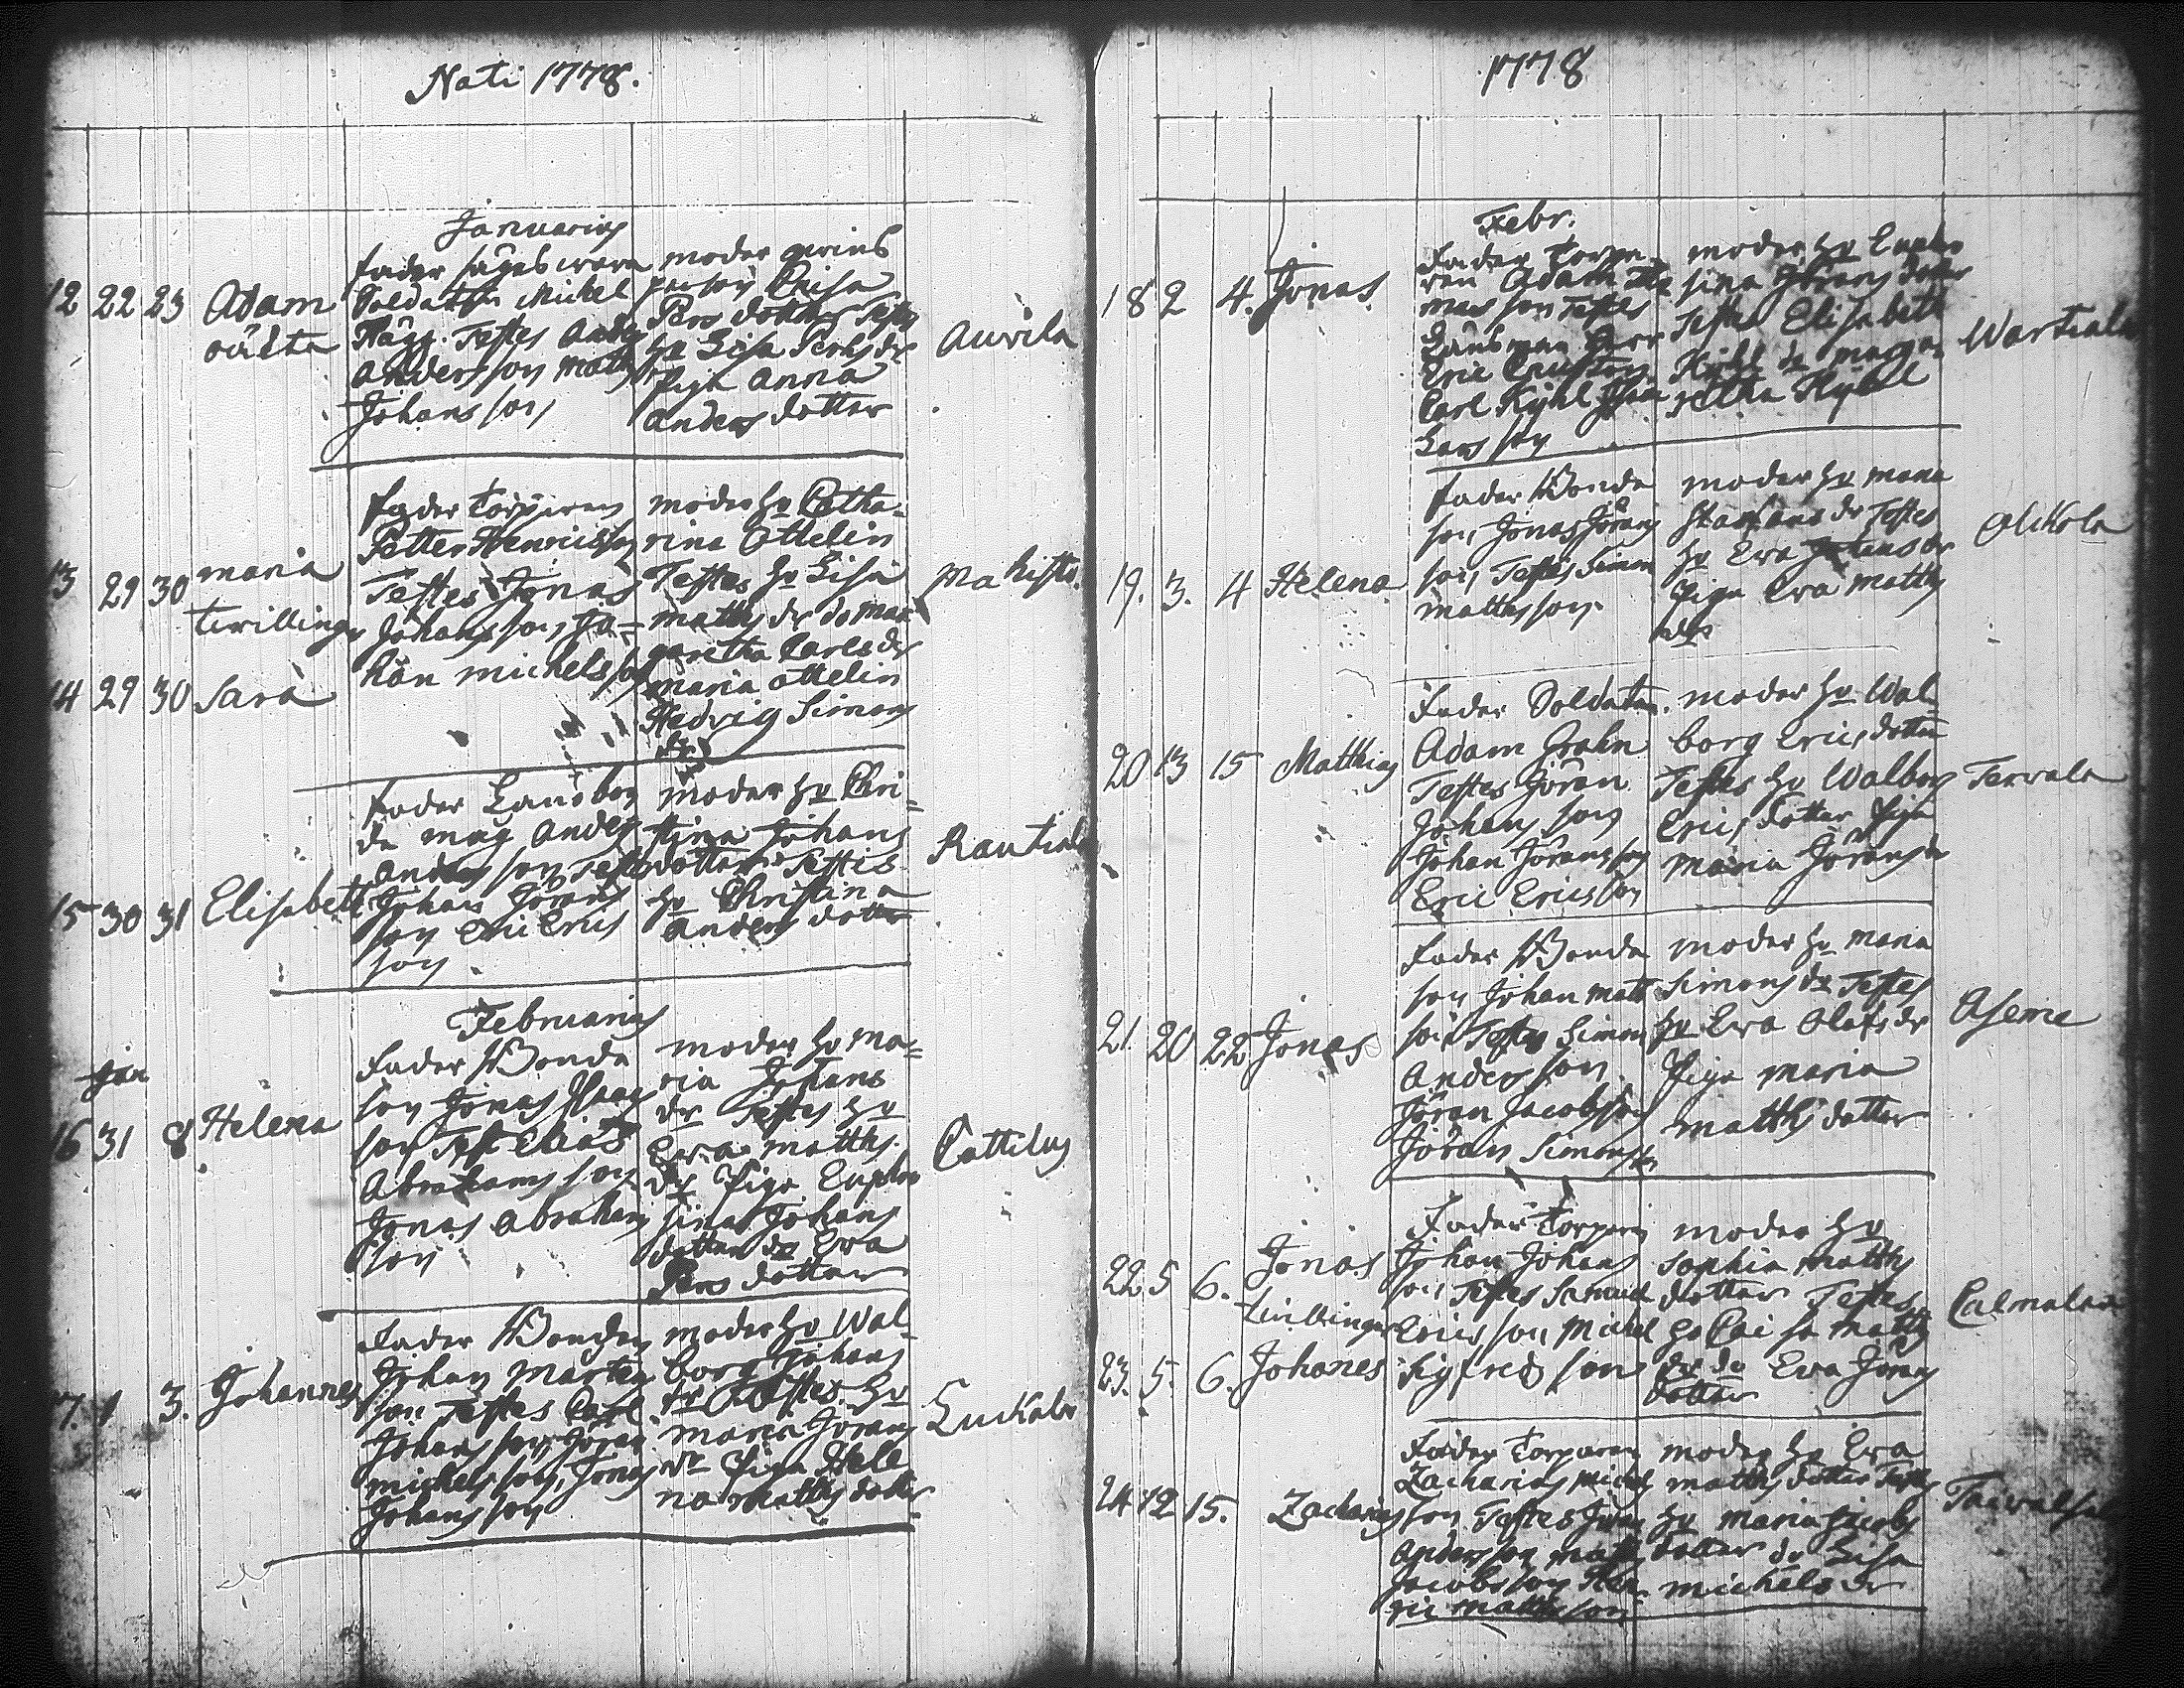 Nati 1778.
Januarius
12 22 23 Adam
oäkta
Fader säges wara
Soldaten Michel
Hägg. Testes Anders
Andersson Matts
Johansson
moder qwins
person Caisa
Pers dotter Testes
hu Lisa Perhs dr
Piga Anna
Anders dotter
Auvila
13 29 30 Maria
twillingar
14 29 30 Sara
Fader Torparen
Petter Henricsson
Testes Jonas
Johansson, Jo-
han Michelsson
moder hu Catha-
rina Ottelin
Testes hu Lisa
Matths dr do Mar
garetha Carls dr
Maria Ottelin
Hedvig Simons
dr
15 30 31 Elisabeth
Fader Landbon
de
Anders
Andersson Testes
Johan Jörans
son Eric Erics
son
moder hu Chri-
stina Johans
dotter Testes
hu Christina
Anders dotter
Rautiala
Februarius
Jan
16 31 8 Helena
Fader Bonde
son Jonas Isaacs
son Test Elias
Abrahamsson
Jonas Abrahams
son
moder hu Ma-
ria Johans
dr Testes hu
Ewa Matths
dr Piga Euphro
sina Johans
dotter do Ewa
Pers dotter
Cattelus
17. 1 3. Johannes
Fader Bonden
Johan Mårtens
son Testes Carl
Johansson, Jöran
Michelsson, Jonas
Johansson
moder hu Wal-
borg Johans
dr Testes hu
Maria Jörans
dr Piga Hele
na Matths dotter
Luckala
1778
Febr.
18 2 4. Jonas
Fader Torpa-
ren Adam Tho
mas son Testes
Länsman Herr
Eric
Carl Kyhl
Lars son
moder hu Euphro
sina Jörans dotter
Testes Elisabeth
Kyhl do Marga
retha Kyhl
Wartiala
19. 3. 4 Helena
Fader Bonde
son Jonas Jörans
son, Testes Simon
Matthsson.
moder hu Maria
Staffans dr Testes
hu Ewa Johans dr
Piga Ewa Matths
dr
Alikola
20 13 15 Matthias
Fader Soldaten
Adam Grahn
Testes Jöran
Johansson
Johan Jöransson
Eric Ericsson
moder hu Wal-
borg Erics dotter
Testes hu Walborg
Erics dotter Piga
Maria Jörans dr
Terwala
21. 20 22 Jonas
Fader Bonde
son Johan Matts
son Testes Simon
Andersson
Jöran Jacobsson
Jöran Simonsson
moder hu Maria
Simons dr Testes
hu Ewa Olofs dr
Piga Maria
Matths dotter
Aseme
22. 5 6. Jonas
twillingar
23. 5. 6. Johanes
Fader Torparen
Johan Johans
son Testes Samuel
Ericsson Michel
Sigfredsson
moder hu
Sophia Matths
dotter Testes
hu Caisa Matths
dr do Ewa Jörans
dotter
Calmalax
24 12 15. Zacharias
Fader Torparen
Zacharias Michels
son Testes Johan
Andersson Matts
Jacobsson Hen
ric Matthsson
moder hu Ewa
Matths dotter Testes
hu Maria Jacobs
dotter do Lisa
Michels dr